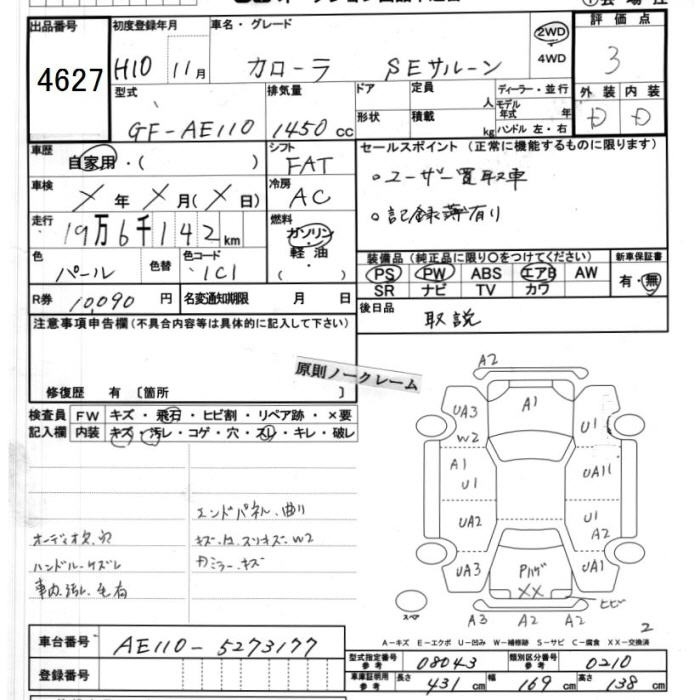 出品番号 初度登録年月 車名・グレード 評価点
4627 H10 11月 カローラ SEサルーン 2WD 4WD 3
型式 排気量 ドア 定員 人 ディーラー・並行 外装 内装
GF-AE110 1450cc 形状 積載 kg モデル年式 年 ハンドル 左・右 D D
車歴 自家用・( ) シフト FAT セールスポイント (正常に機能するものに限ります)
車検 X年X月(X日) 冷房 AC 。ユーザー買取車
走行 19万6千142km 燃料 ガソリン・軽油・( ) 。記録簿有り
色 パール 色替 色コード 1C1 装備品 (純正品に限り〇をつけてください) 新車保証書
PS PW ABS エアB AW 有・無
SR ナビ TV カワ
R券 10,090円 名変通知期限 月 日 後日品 取説
注意事項申告欄(不具合内容等は具体的に記入して下さい)
原則ノークレーム
修復歴 有 〔箇所 〕
検査員記入欄 FW キズ・飛石・ヒビ割・リペア跡・×要
内装 キズ・汚レ・コゲ・穴・スレ・キレ・破レ
エンドパネル曲り
オーディオ欠、穴
ハンドル・ケズレ
車内汚レ・毛有
A2
A1
UA3 W2
A1 U1
UA2
UA3
U1
UA11
U1 A2
UA1
Pハゲ XX
ヒビ
スペア
A3 A2 A2
2
A-キズ E-エクボ U-凹み W-補修跡 S-サビ C-腐食 XX-交換済
車台番号 AE110-5273177
登録番号
型式指定番号 参考 08043 類別区分番号 参考 0210
車庫証明用 参考 長さ 431cm 幅 169cm 高さ 138cm